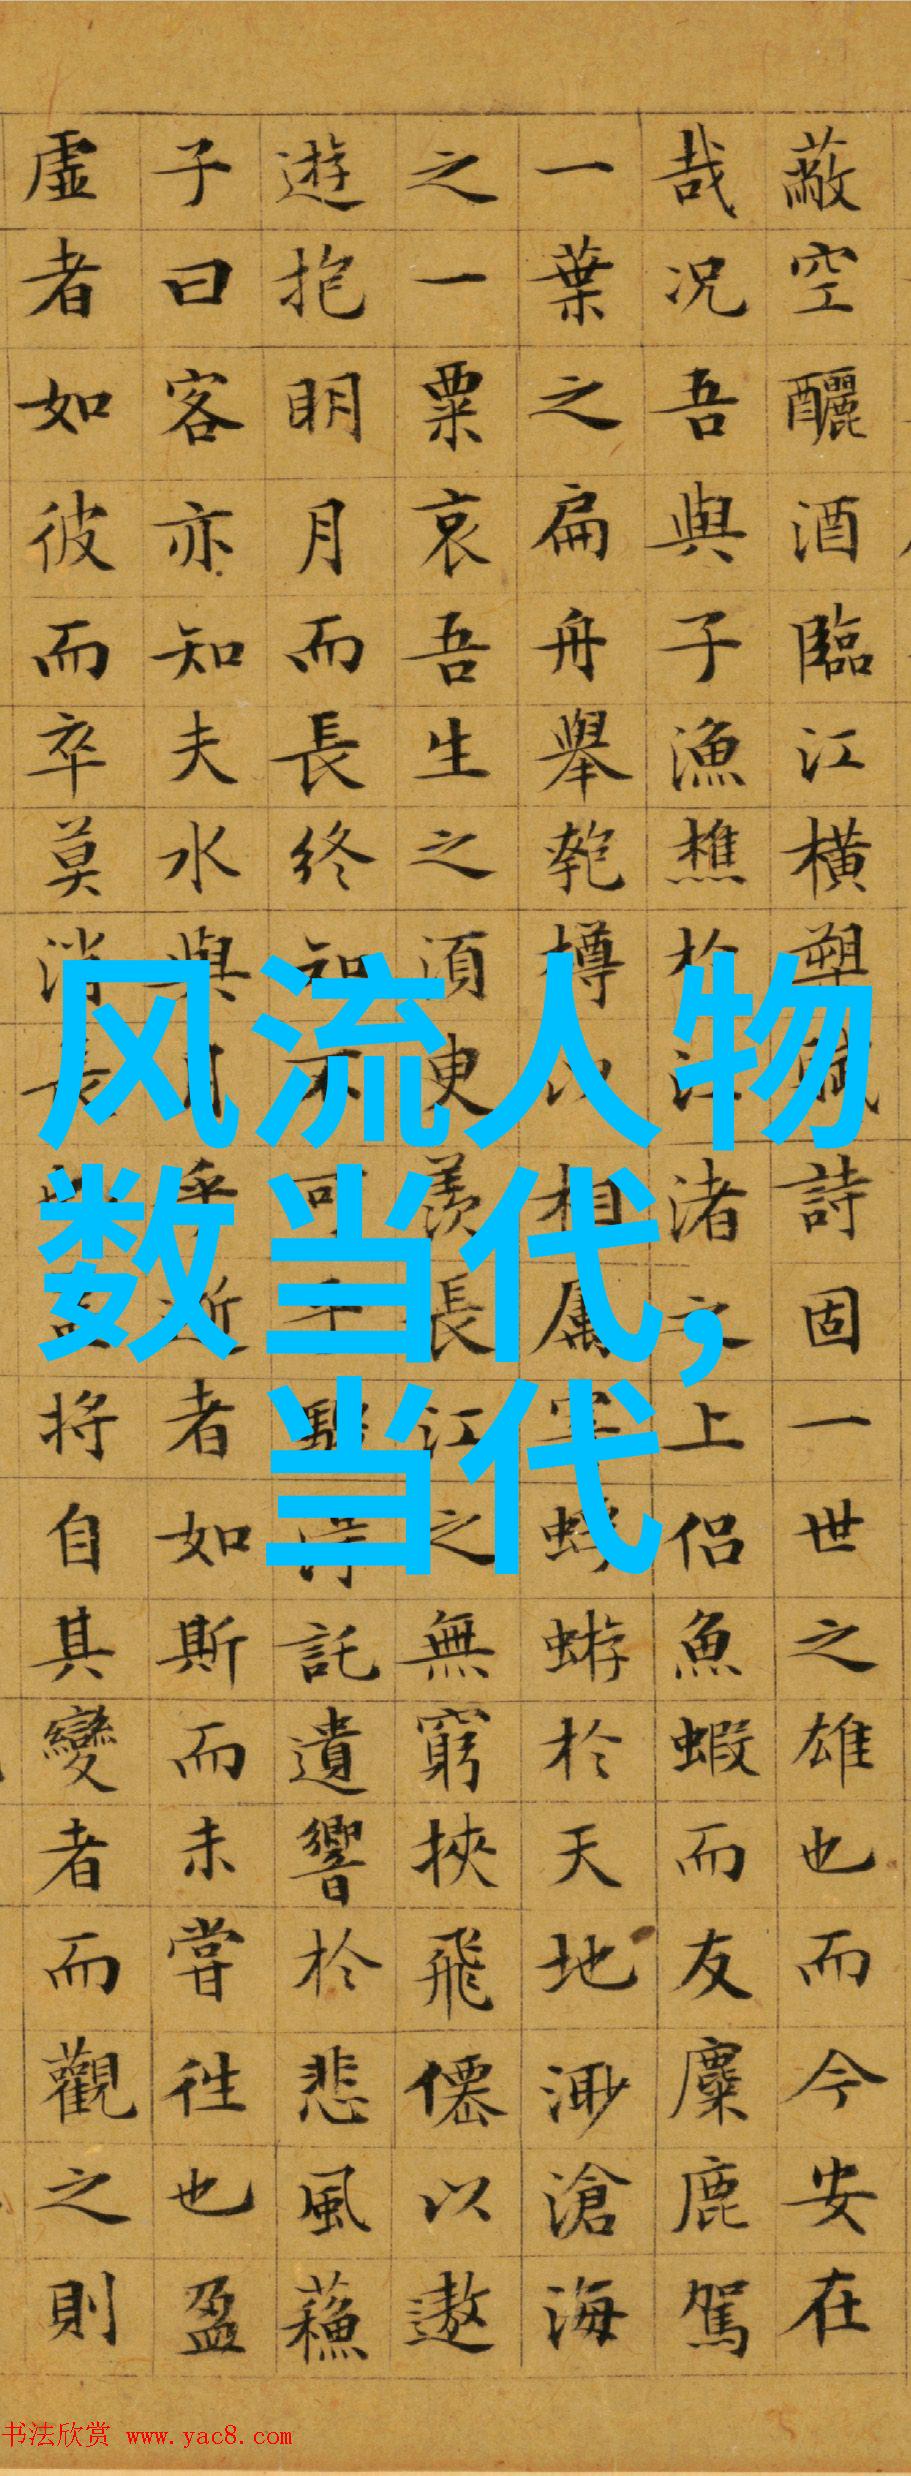 蔽空釃酒臨江橫槊賦詩固一世之雄也而今安在
哉况吾與子漁樵於江渚之上侶魚蝦而友麋鹿駕
一葉之扁舟舉匏樽以相属寄蜉蝣於天地渺滄海
之一粟哀吾生之須臾羨長江之無窮挾飛僊以遨
遊抱明月而長終知不可乎驟得託遺響於悲風蘓
子曰客亦知夫水與月乎逝者如斯而未嘗往也盈
虛者如彼而卒莫消長也蓋将自其變者而觀之則
风流人物
数当代,
当代
书法欣赏 www.yac8.com